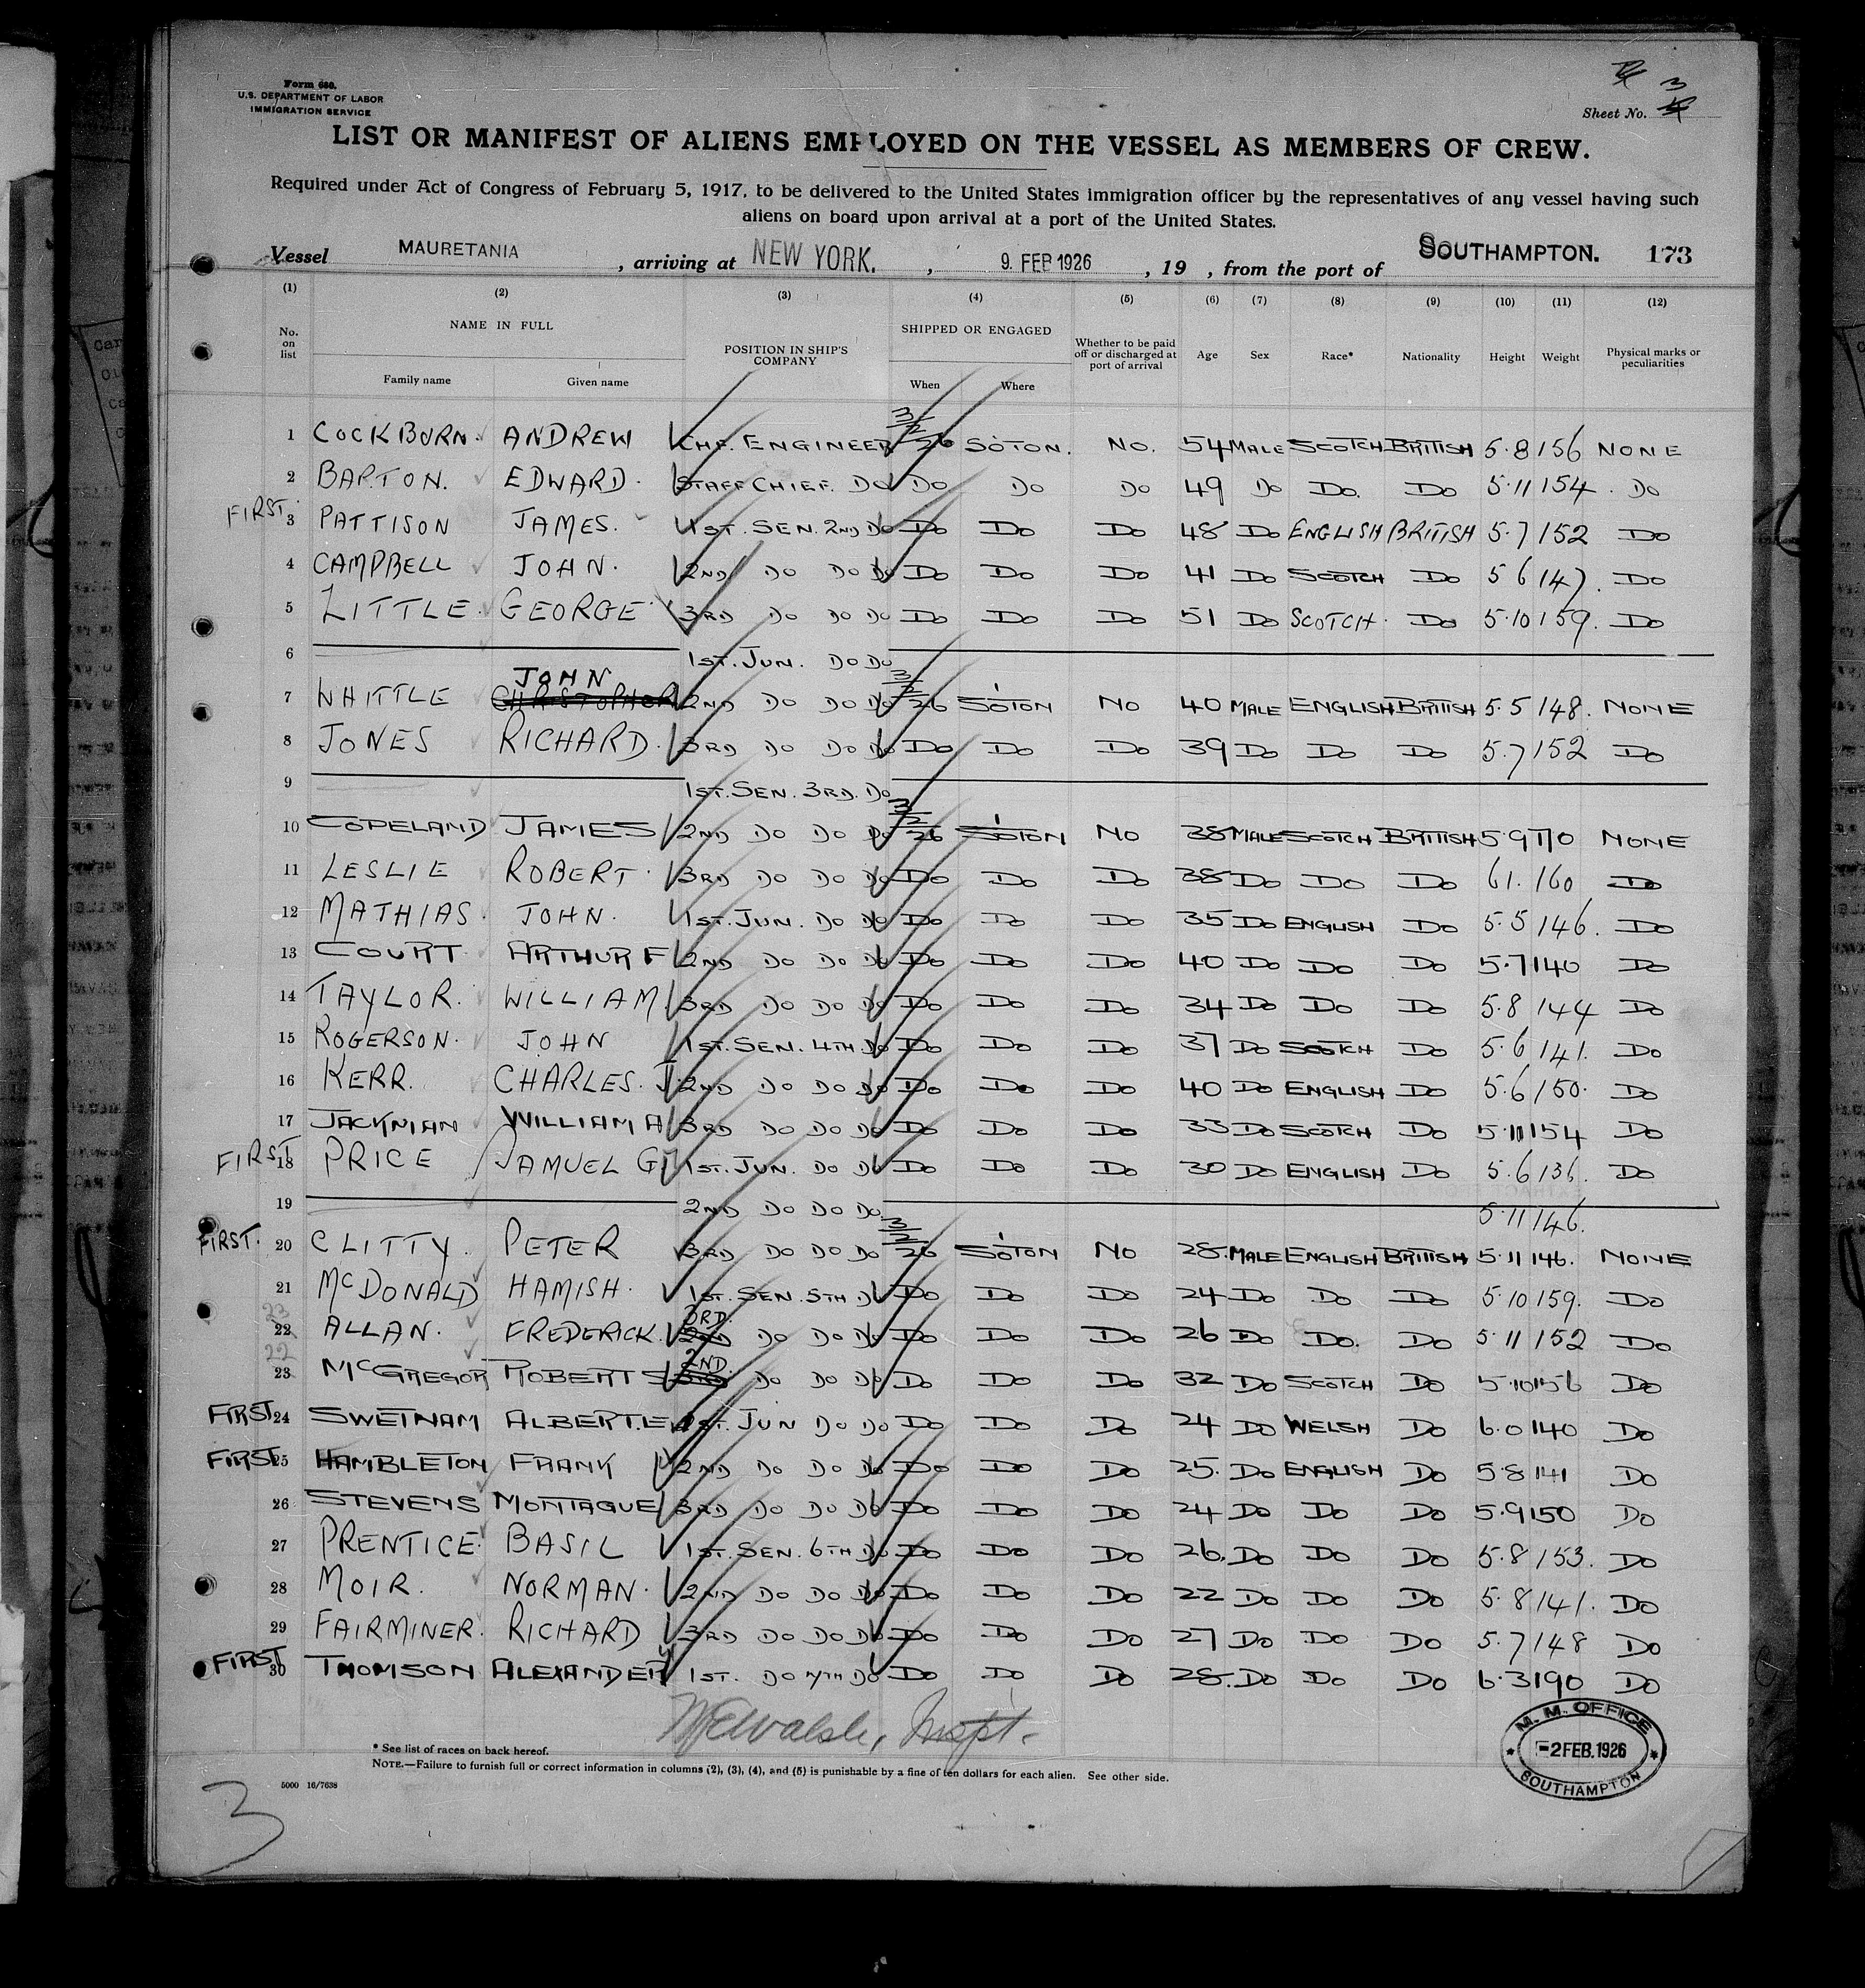 Form 680.
U.S. DEPARTMENT OF LABOR
IMMIGRATION SERVICE
3
Sheet No.
LIST OR MANIFEST OF ALIENS EMPLOYED ON THE VESSEL AS MEMBERS OF CREW.
Required under Act of Congress of February 5, 1917, to be delivered to the United States immigration officer by the representatives of any vessel having such
aliens on board upon arrival at a port of the United States.
Vessel MAURETANIA, arriving at NEW YORK., 9. FEB 1926, 19 , from the port of SOUTHAMPTON. 173
(1) (2) (3) (4) (5) (6) (7) (8) (9) (10) (11) (12)
No. on list NAME IN FULL Family name Given name POSITION IN SHIP'S COMPANY SHIPPED OR ENGAGED When Where Whether to be paid off or discharged at port of arrival Age Sex Race* Nationality Height Weight Physical marks or peculiarities
1 COCKBURN. ANDREW CHF. ENGINEER 3/2/26 SOTON. NO. 54 MALE SCOTCH BRITISH 5.8 156 NONE
2 BARTON. EDWARD. STAFF CHIEF. DO DO DO DO 49 DO DO. DO 5.11 154. DO
FIRST. 3 PATTISON JAMES. 1ST. SEN. 2ND DO DO DO DO 48 DO ENGLISH BRITISH 5.7 152 DO
4 CAMPBELL JOHN. 2ND DO DO DO DO DO DO 41 DO SCOTCH DO 5 6 147. DO
5 LITTLE. GEORGE 3RD DO DO DO DO DO DO 51 DO SCOTCH. DO 5.10 159. DO
6 1ST. JUN. DO DO
JOHN
7 WHITTLE CHRISTOPHER 2ND DO DO DO 3/2/26 SOTON NO 40 MALE ENGLISH BRITISH 5.5 148. NONE
8 JONES RICHARD. 3RD DO DO DO DO DO DO 39 DO DO DO 5.7 152 DO
9 1ST. SEN. 3RD. DO
10 COPELAND JAMES 2ND DO DO DO 3/2/26 SOTON NO 38 MALE SCOTCH BRITISH 5.9 170 NONE
11 LESLIE ROBERT. 3RD DO DO DO DO DO DO 38 DO DO DO 6 1. 160 DO
12 MATHIAS. JOHN. 1ST. JUN. DO DO DO DO DO 35 DO ENGLISH DO 5.5 146. DO
13 COURT ARTHUR F 2ND DO DO DO DO DO DO 40 DO DO DO 5.7 140 DO
14 TAYLOR. WILLIAM 3RD DO DO DO DO DO DO 34 DO DO DO 5.8 144 DO
15 ROGERSON. JOHN 1ST. SEN. 4TH DO DO DO DO 37 DO SCOTCH DO 5.6 141. DO
16 KERR. CHARLES. J. 2ND DO DO DO DO DO DO 40 DO ENGLISH DO 5.6 150. DO
17 JACKMAN WILLIAM A 3RD DO DO DO DO DO DO 33 DO SCOTCH DO 5.11 154 DO
FIRST 18 PRICE SAMUEL G 1ST. JUN. DO DO DO DO DO 30 DO ENGLISH DO 5.6 136. DO
19 2ND DO DO DO 5.11 146.
FIRST. 20 CLITTY. PETER 3RD DO DO DO 3/2/26 SOTON NO 28. MALE ENGLISH BRITISH 5.11 146. NONE
21 MCDONALD HAMISH. 1ST. SEN. 5TH DO DO DO DO 24 DO DO DO 5.10 159. DO
23 3RD.
22 ALLAN. FREDERICK. 2ND DO DO DO DO DO DO 26 DO DO. DO 5.11 152 DO
22 2ND.
23 MCGREGOR ROBERT S 3RD DO DO DO DO DO DO 32 DO SCOTCH DO 5.10 156 DO
FIRST 24 SWETNAM ALBERT.E. 1ST. JUN DO DO DO DO DO 24 DO WELSH DO 6.0 140 DO
FIRST 25 HAMBLETON FRANK 2ND DO DO DO DO DO DO 25. DO ENGLISH DO 5.8 141 DO
26 STEVENS MONTAGUE 3RD DO DO DO DO DO DO 24 DO DO DO 5.9 150 DO
27 PRENTICE. BASIL 1ST. SEN. 6TH DO DO DO DO 26. DO DO DO 5.8 153. DO
28 MOIR. NORMAN. 2ND DO DO DO DO DO DO 22 DO DO DO 5.8 141. DO
29 FAIRMINER. RICHARD 3RD DO DO DO DO DO DO 27 DO DO DO 5.7 148 DO
FIRST 30 THOMSON ALEXANDER 1ST. DO 7TH DO DO DO DO 28. DO DO DO 6.3 190 DO
Walsh, Inspt.
M. M. OFFICE
-2 FEB. 1926
SOUTHAMPTON
* See list of races on back hereof.
NOTE.—Failure to furnish full or correct information in columns (2), (3), (4), and (5) is punishable by a fine of ten dollars for each alien. See other side.
5000 16/7638
3